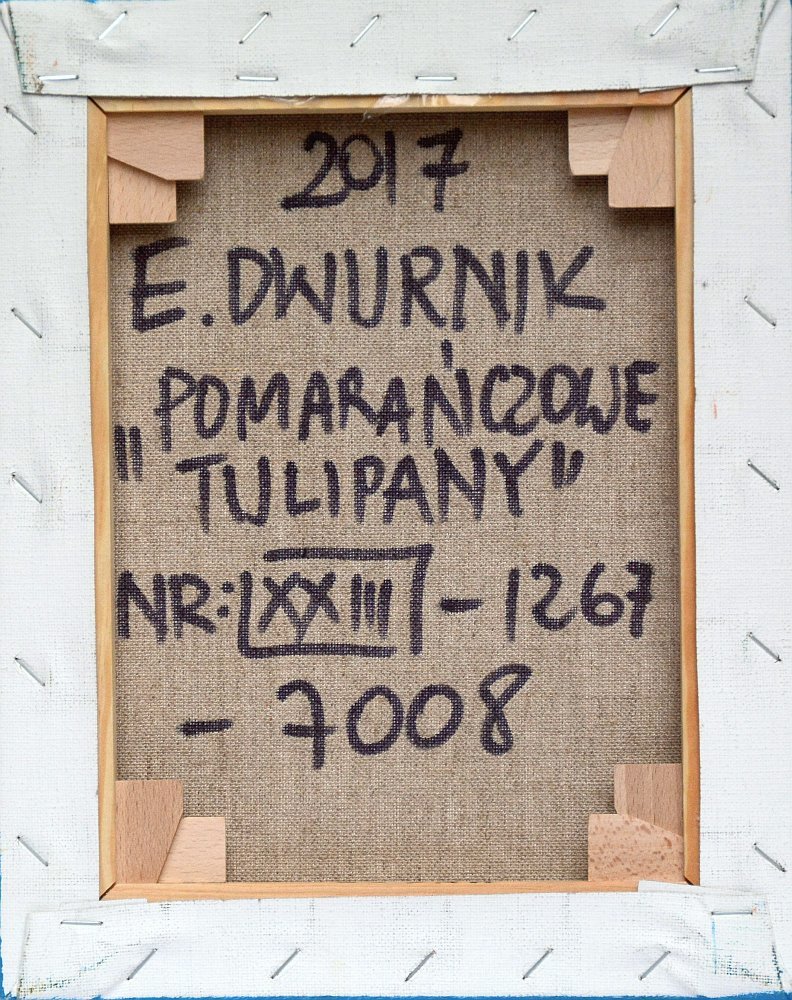 2017
E. DWURNIK
"POMARAŃCZOWE
TULIPANY"
NR: XXIII - 1267
- 7008